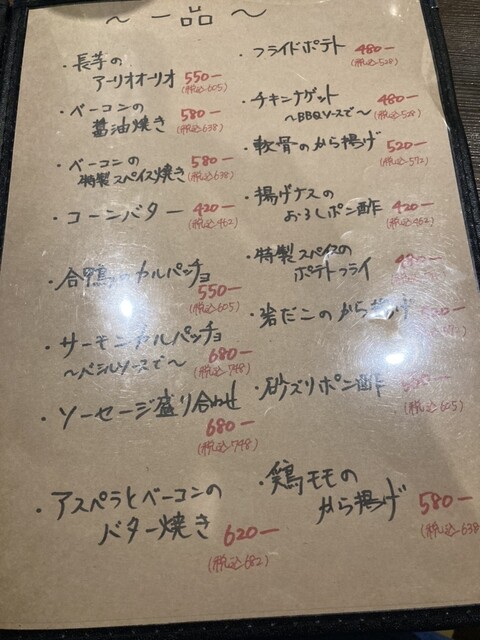 ～一品～
・長芋の
アーリオオーリオ 550ー
(税込605)
・ベーコンの
醤油焼き 580ー
(税込638)
・ベーコンの
特製スペイス焼き 580ー
(税込638)
・コーンバター 420ー
(税込462)
・合鴨のカルパッチョ
550ー
(税込605)
・サーモンカルパッチョ
～バジルソースで～ 680ー
(税込748)
・ソーセージ盛り合わせ
680ー
(税込748)
・アスペラとベーコンの
バター焼き 620ー
(税込682)
・フライドポテト 480ー
(税込528)
・チキンナゲット 480ー
～BBQソースで～ (税込528)
・軟骨のから揚げ 520ー
(税込572)
・揚げナスの
おろしポン酢 420ー
(税込462)
・特製スペイスの
ポテトフライ 480ー
・岩だこのから揚げ
・砂ズリポン酢
(税込605)
・鶏モモの
から揚げ 580ー
(税込638